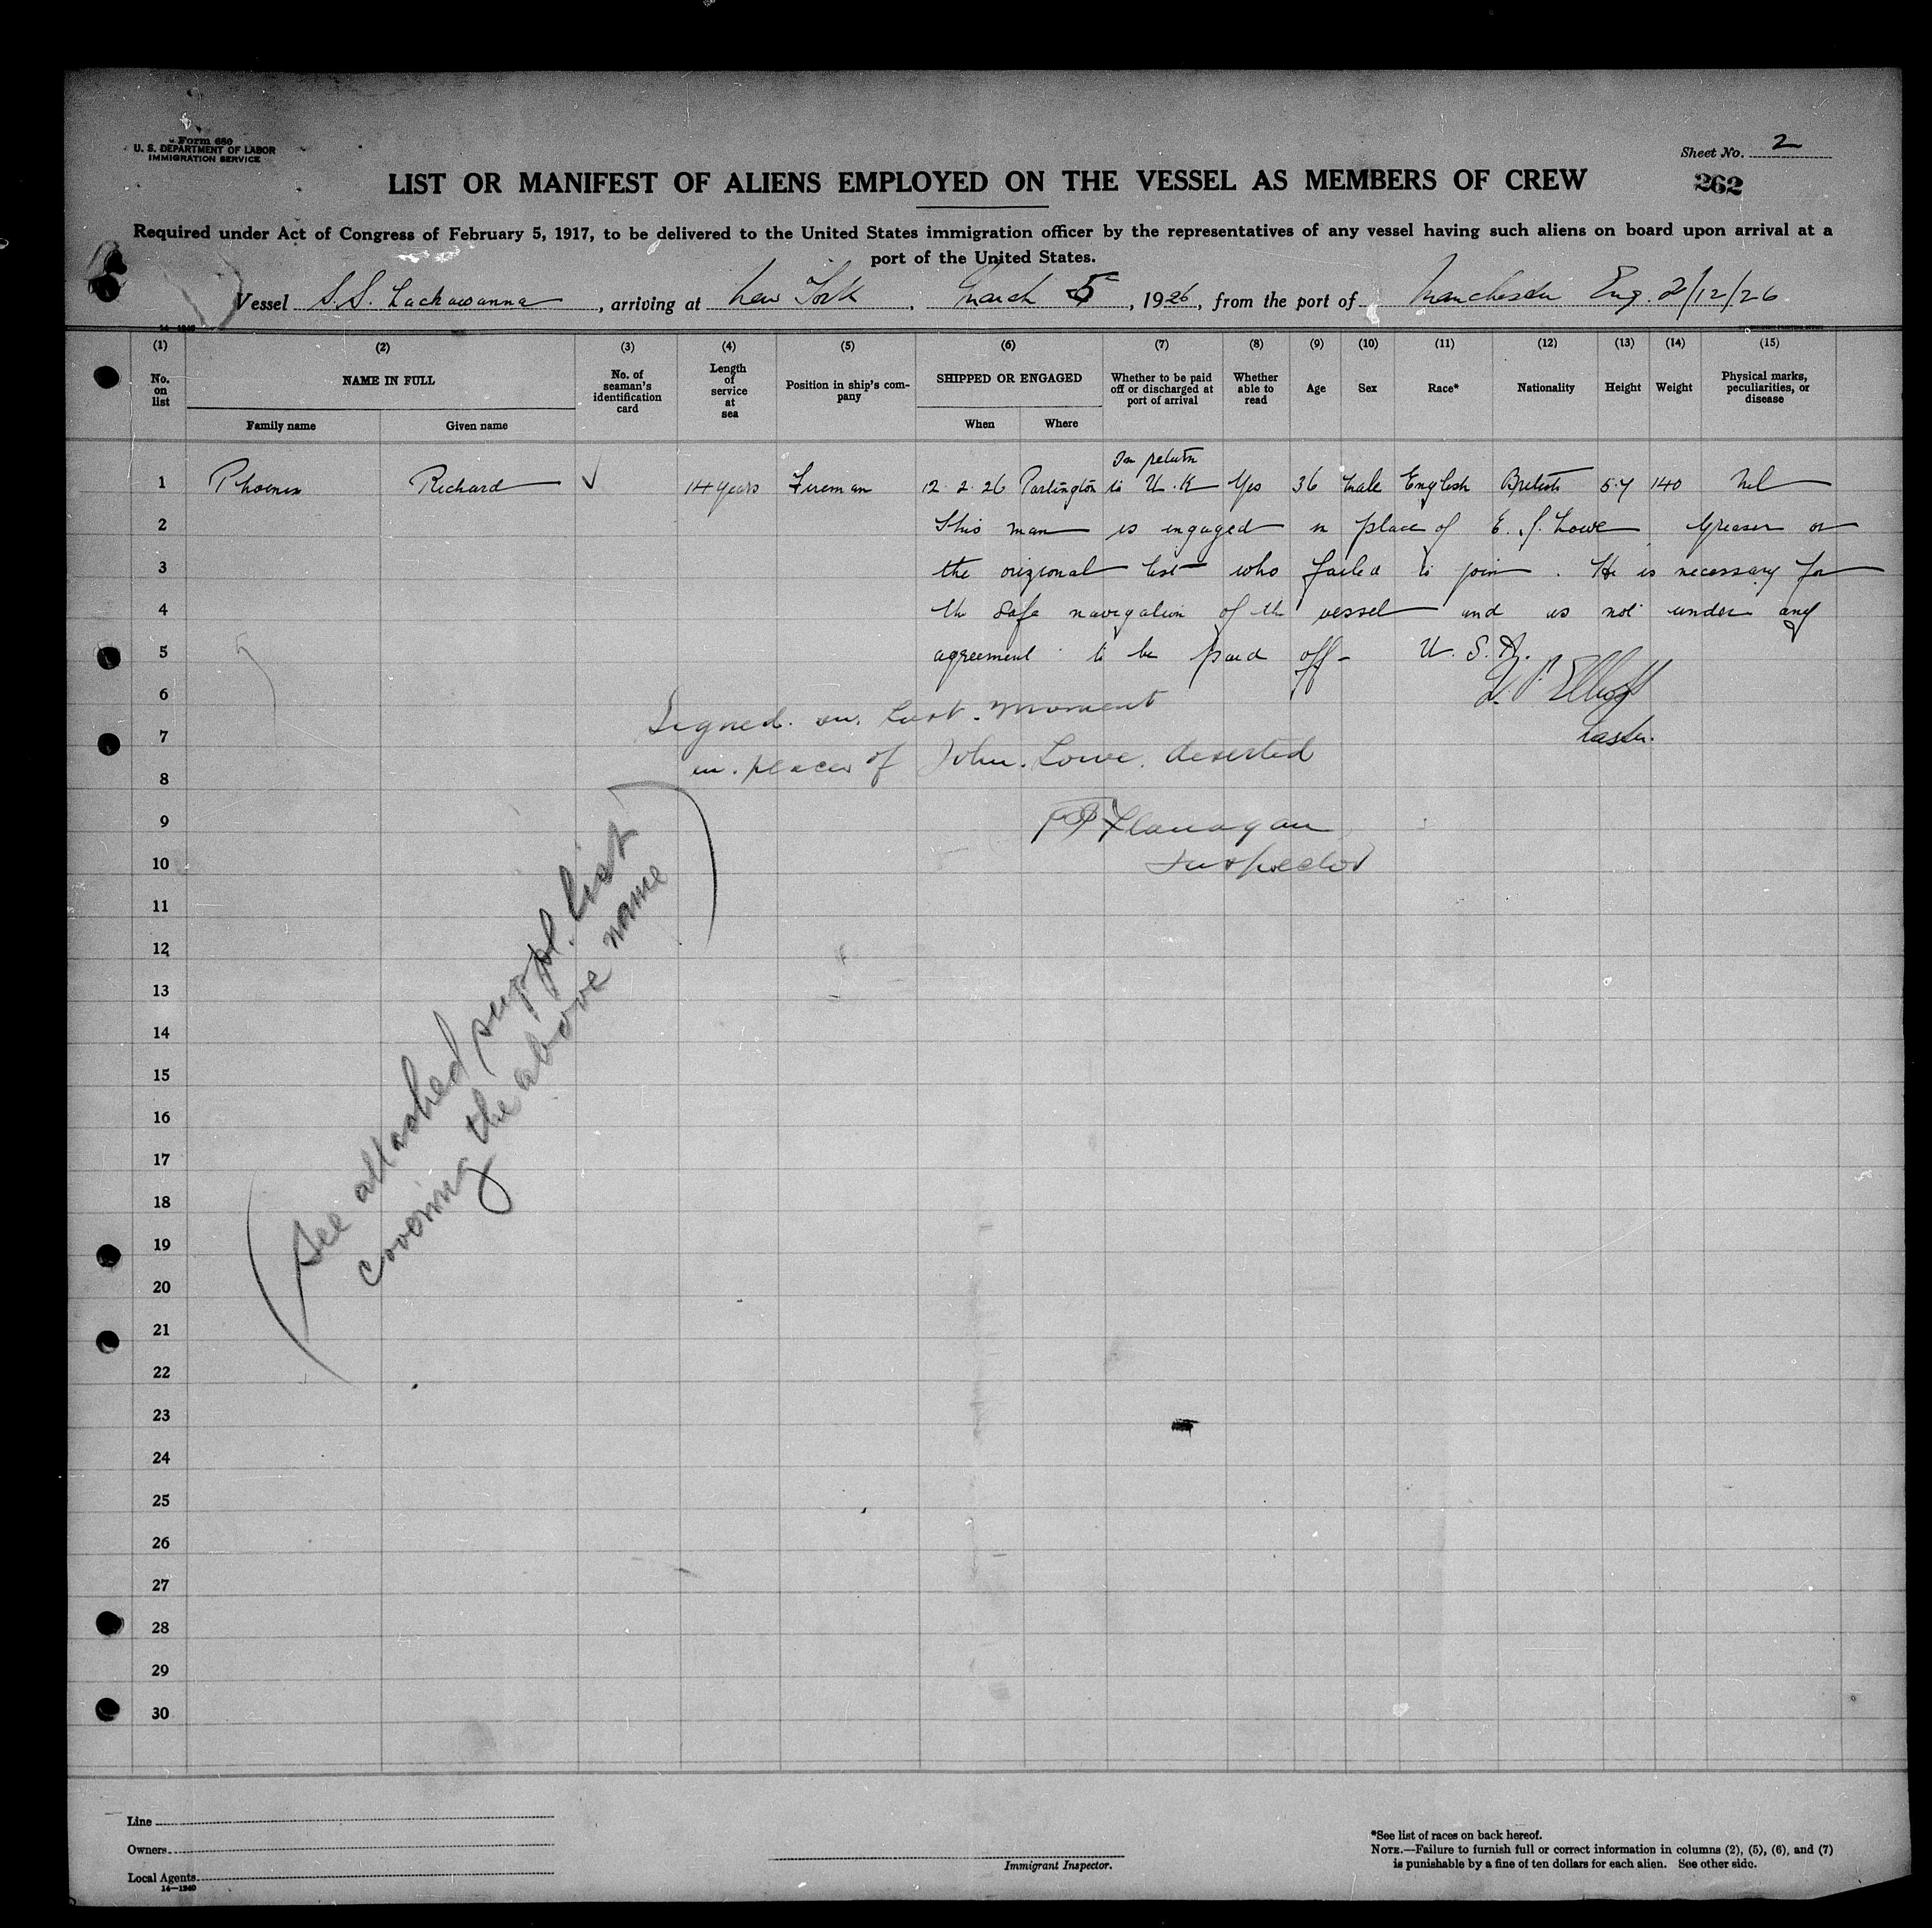 Form 680
U. S. DEPARTMENT OF LABOR
IMMIGRATION SERVICE
Sheet No. 2
262
LIST OR MANIFEST OF ALIENS EMPLOYED ON THE VESSEL AS MEMBERS OF CREW
Required under Act of Congress of February 5, 1917, to be delivered to the United States immigration officer by the representatives of any vessel having such aliens on board upon arrival at a
port of the United States.
Vessel S.S. Lackawanna, arriving at New York, March 5, 1926, from the port of Manchester Eng. 2/12/26
(1) (2) (3) (4) (5) (6) (7) (8) (9) (10) (11) (12) (13) (14) (15)
No. on list
NAME IN FULL
Family name
Given name
No. of seaman's identification card
Length of service at sea
Position in ship's company
SHIPPED OR ENGAGED
When
Where
Whether to be paid off or discharged at port of arrival
Whether able to read
Age
Sex
Race*
Nationality
Height
Weight
Physical marks, peculiarities, or disease
To return
1 Phoenix Richard ✓ 14 years Fireman 12 2 26 Partington to U.K Yes 36 Male English British 5.7 140 Nil
2 This man is engaged in place of E. J. Lowe Greaser on
3 the origional list who failed to join. He is necessary for
4 the safe navigation of the vessel and is not under any
5 agreement to be paid off - U. S. A.
6 Signed on last moment
Elliott
7 in place of John Lowe deserted
Master.
8
9 Flanagan
10 Inspector
(See attached suppl. list
covering the above name)
11
12
13
14
15
16
17
18
19
20
21
22
23
24
25
26
27
28
29
30
Line
Owners
Local Agents
14—1240
Immigrant Inspector.
*See list of races on back hereof.
NOTE.—Failure to furnish full or correct information in columns (2), (5), (6), and (7)
is punishable by a fine of ten dollars for each alien. See other side.